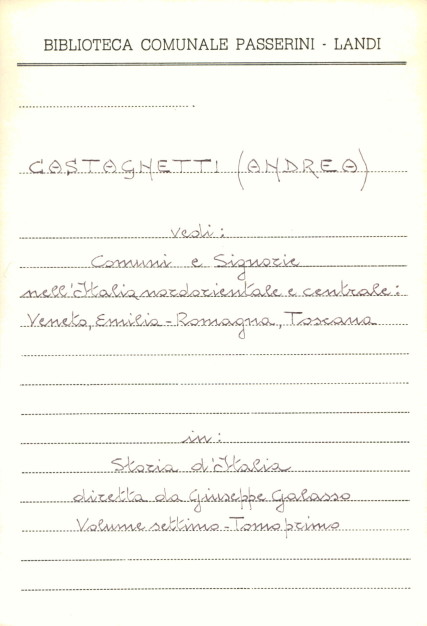 BIBLIOTECA COMUNALE PASSERINI - LANDI
CASTAGNETTI (ANDREA)
vedi:
Comuni e Signorie
nell'Italia nordorientale e centrale:
Veneto, Emilia-Romagna, Toscana
in:
Storia d'Italia
diretta da Giuseppe Galasso
Volume settimo-Tomo primo